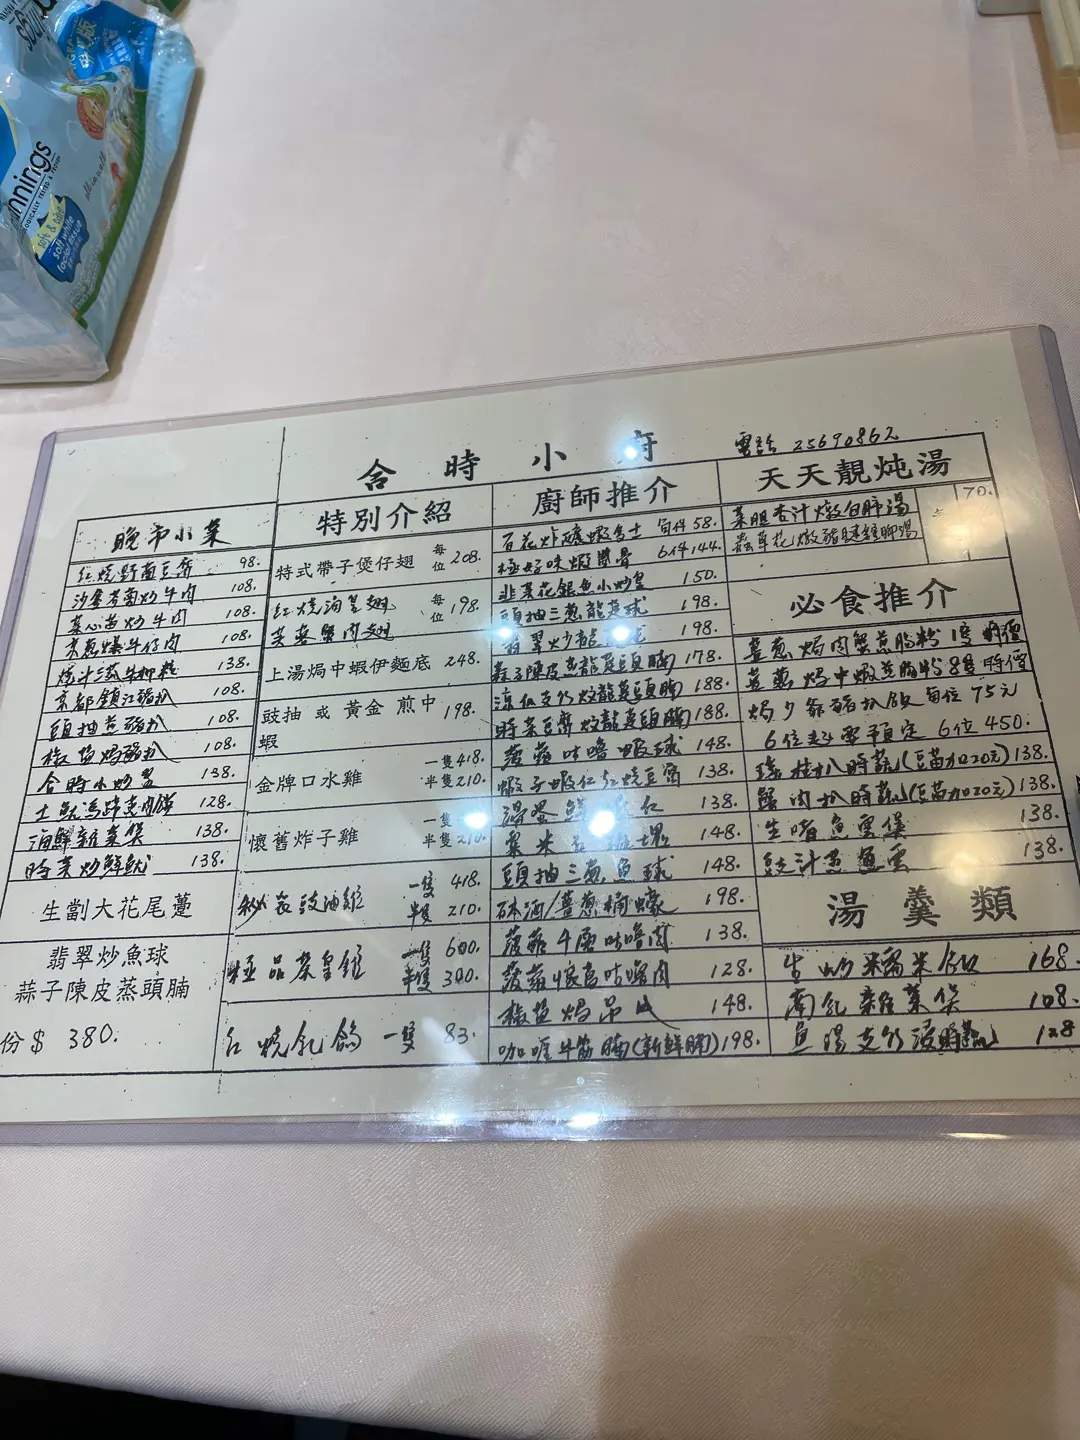 nnings
soft & safe
soft white
facial tissue
合時小府
電話 25690862
晚市小菜
紅燒野菌豆腐 98.
炒牛肉 108.
菜心苗炒牛肉 108.
京葱爆牛仔肉 108.
燒汁 牛柳粒 138.
京都鎮江豬扒 108.
頭抽煎豬扒 108.
椒鹽焗豬扒 108.
合時小炒皇 138.
土魷馬蹄蒸肉餅 128.
海鮮雜菜煲 138.
時菜炒鮮魷 138.
生劏大花尾躉
翡翠炒魚球
蒜子陳皮蒸頭腩
份$ 380.
特別介紹
特式帶子煲仔翅 每位 208.
紅燒海皇翅 每位 198.
芙蓉蟹肉翅
上湯焗中蝦伊麵底 248.
豉抽 或 黃金 煎中蝦 198.
金牌口水雞 一隻 418. 半隻 210.
懷舊炸子雞 一隻 半隻 210.
秘製豉油雞 一隻 418. 半隻 210.
極品茶皇雞 一隻 600. 半隻 300.
紅燒乳鴿 一隻 83.
廚師推介
百花炸釀蝦多士 每件 58.
極好味蝦醬骨 6件 144.
韭菜花銀魚小炒皇 150.
頭抽三葱龍躉球 198.
翡翠炒龍躉球 198.
蒜子陳皮蒸龍躉頭腩 178.
涼瓜支竹炆龍躉頭腩 188.
時菜豆腐炆龍躉頭腩 188.
菠蘿咕嚕蝦球 148.
蝦子蝦仁紅燒豆腐 138.
滑蛋鮮蝦仁 138.
粟米 斑塊 148.
頭抽三葱魚球 148.
砵酒/薑葱桶蠔 198.
菠蘿千層咕嚕肉 138.
菠蘿懷舊咕嚕肉 128.
椒鹽焗吊片 148.
咖喱牛筋腩(新鮮腩) 198.
天天靚炖湯
菜膽杏汁燉白肺湯 70.
蟲草花燉豬腱雞腳湯
必食推介
薑葱焗肉蟹煎腸粉 1隻 時價
薑葱焗中蝦煎腸粉 8隻 時價
焗 豬扒飯 每位 75元
6位起要預定 6位 450.
瑤柱扒時蔬(豆苗加20元) 138.
蟹肉扒時蔬(豆苗加20元) 138.
生啫魚雲煲 138.
豉汁蒸魚雲 138.
湯羹類
生炒糯米飯 168.
南乳雜菜煲 108.
魚湯支竹浸時蔬 128